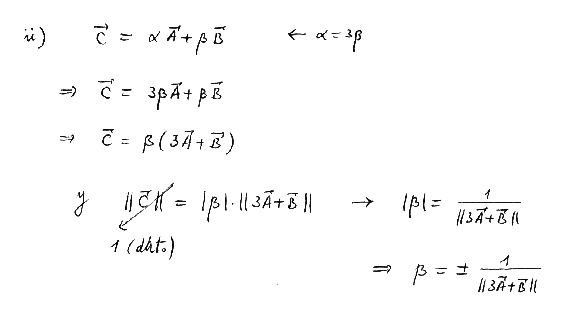 ii) C⃗ = α A⃗ + β B⃗ ← α = 3β
⇒ C⃗ = 3β A⃗ + β B⃗
⇒ C⃗ = β (3A⃗ + B⃗)
y ||C⃗|| = |β| · ||3A⃗ + B⃗|| → |β| = 1 / ||3A⃗ + B⃗||
1 (dato)
⇒ β = ± 1 / ||3A⃗ + B⃗||